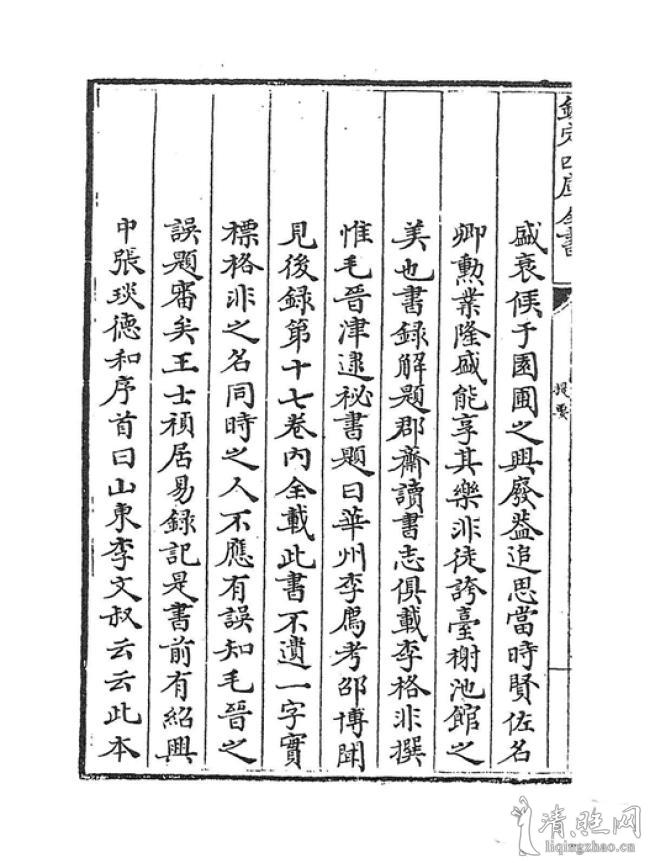 欽定四庫全書
提要
盛衰候于園圃之興廢葢追思當時賢佐名
卿勲業隆盛能享其樂非徒誇臺榭池館之
美也書録解題郡齋讀書志俱載李格非撰
惟毛晉津逮祕書題曰華州李廌考邵博聞
見後録第十七卷内全載此書不遺一字實
標格非之名同時之人不應有誤知毛晉之
誤題審矣王士禎居易録記是書前有紹興
中張琰德和序首曰山東李文叔云云此本
清照网
liqingzhao.cn